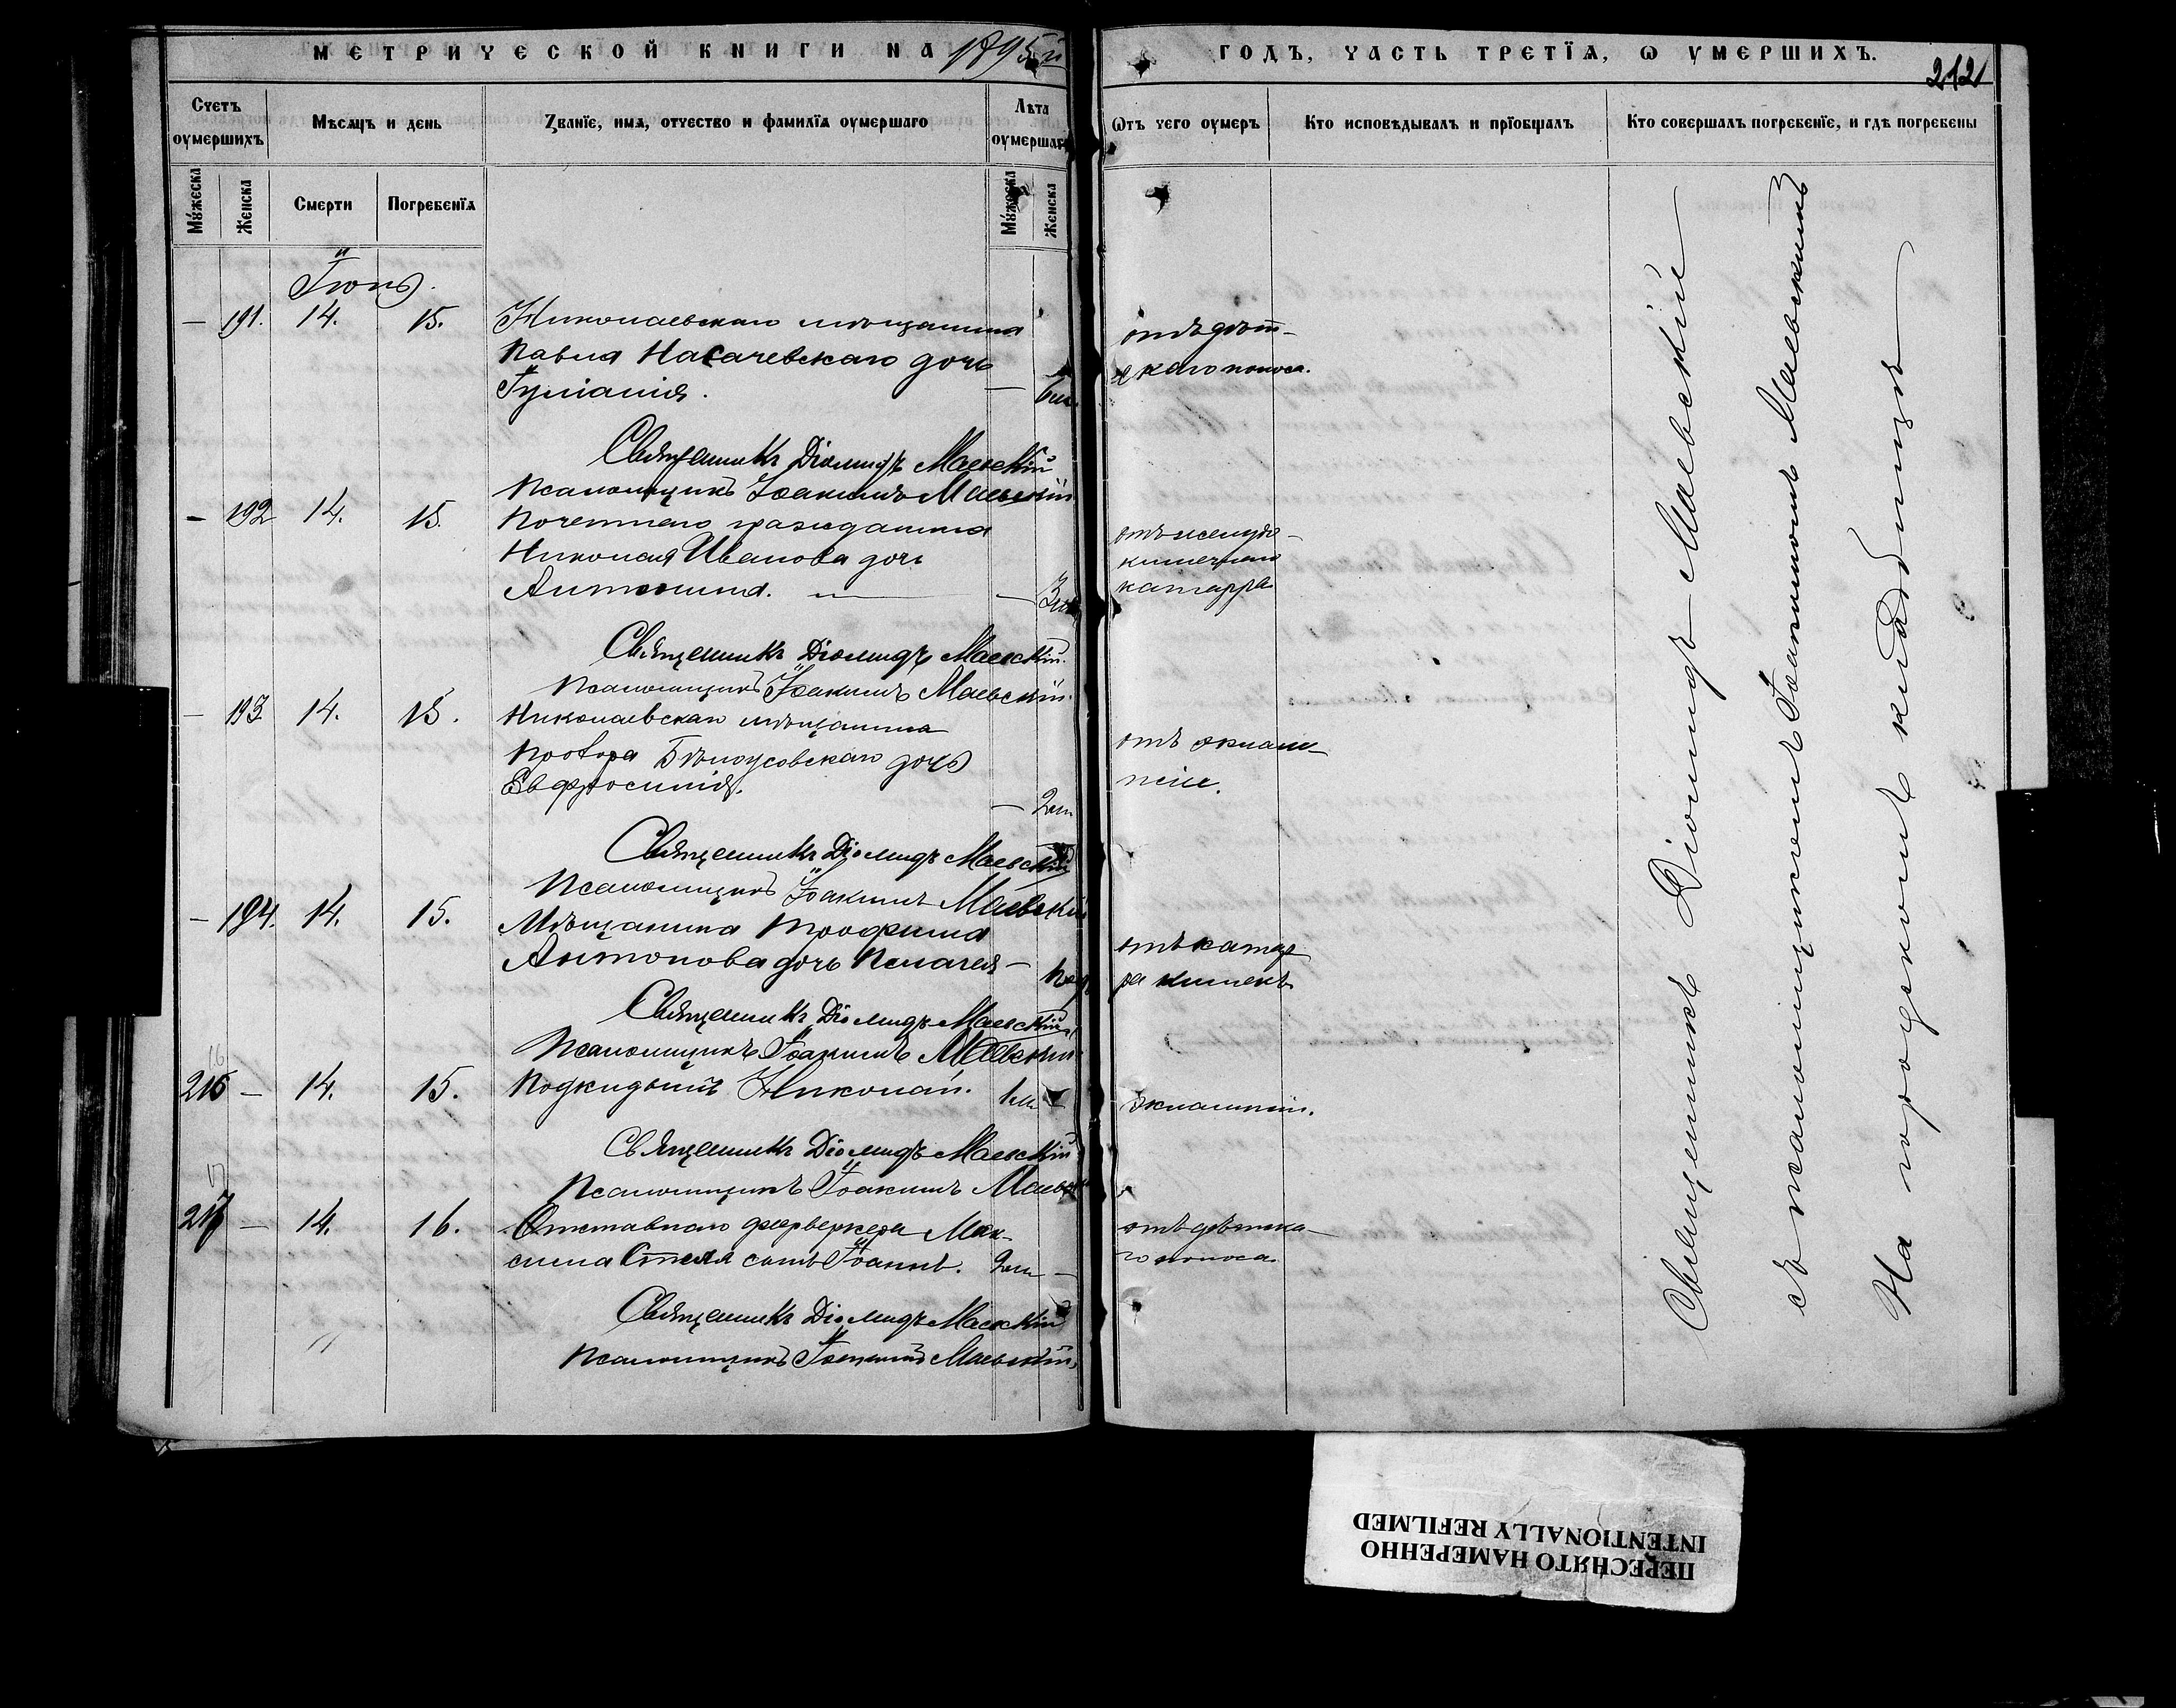 МЕТРИЧЕСКОЙ КНИГИ НА 1895й ГОДЪ, ЧАСТЬ ТРЕТІЯ, Ѡ УМЕРШИХЪ.
212
Счетъ оумершихъ
Мѣсяцъ и день
Званїе, имя, отчество и фамилїя оумершаго
Лѣта оумершаго
Ѿтъ чего оумеръ
Кто исповѣдывалъ и прїобщалъ
Кто совершалъ погребенїе, и гдѣ погребены
Мужеска
Женска
Смерти
Погребенїя
Мужеска
Женска
Іюнь.
— 191. 14. 15. Николаевскаго мѣщанина
Павла Насачевскаго дочь
Іуліанія. — 6м. отъ дѣт-
скаго поноса.
Священникъ Діомидъ Маевскій
Псаломщикъ Іоакимъ Маевскій.
— 192 14. 15. Почетнаго гражданина
Николая Иванова дочь
Антонина. — 3м. отъ желудо-
кишечнаго
катарра
Священникъ Діомидъ Маевскій.
Псаломщикъ Іоакимъ Маевскій.
— 193. 14. 15. Николаевскаго мѣщанина
Бѣлоусовскаго дочь
Евфросинія. — 2м. отъ эклам-
псіи.
Священникъ Діомидъ Маевскій
Псаломщикъ Іоакимъ Маевскій
— 194. 14. 15. Мѣщанина Трофима
Антонова дочь Пелагея — отъ катар-
ра кишекъ
Священникъ Діомидъ Маевскій
Псаломщикъ Іоакимъ Маевскій
16
216 — 14. 15. Подкидышъ Николай. 1м. — эклампсіи.
Священникъ Діомидъ Маевскій
Псаломщикъ Іоакимъ Маевскій
17
217 — 14. 16. Отставнаго феерверкера Мак-
сима сынъ Іоаннъ. 2м. — отъ дѣтска-
го поноса.
Священникъ Діомидъ Маевскій
Псаломщикъ Іоакимъ Маевскій.
Священникъ Діомидъ Маевскій
съ псаломщикомъ Іоакимомъ Маевскимъ
На городскомъ кладбищѣ
ПЕРЕСНЯТО НАМЕРЕННО
INTENTIONALLY REFILMED